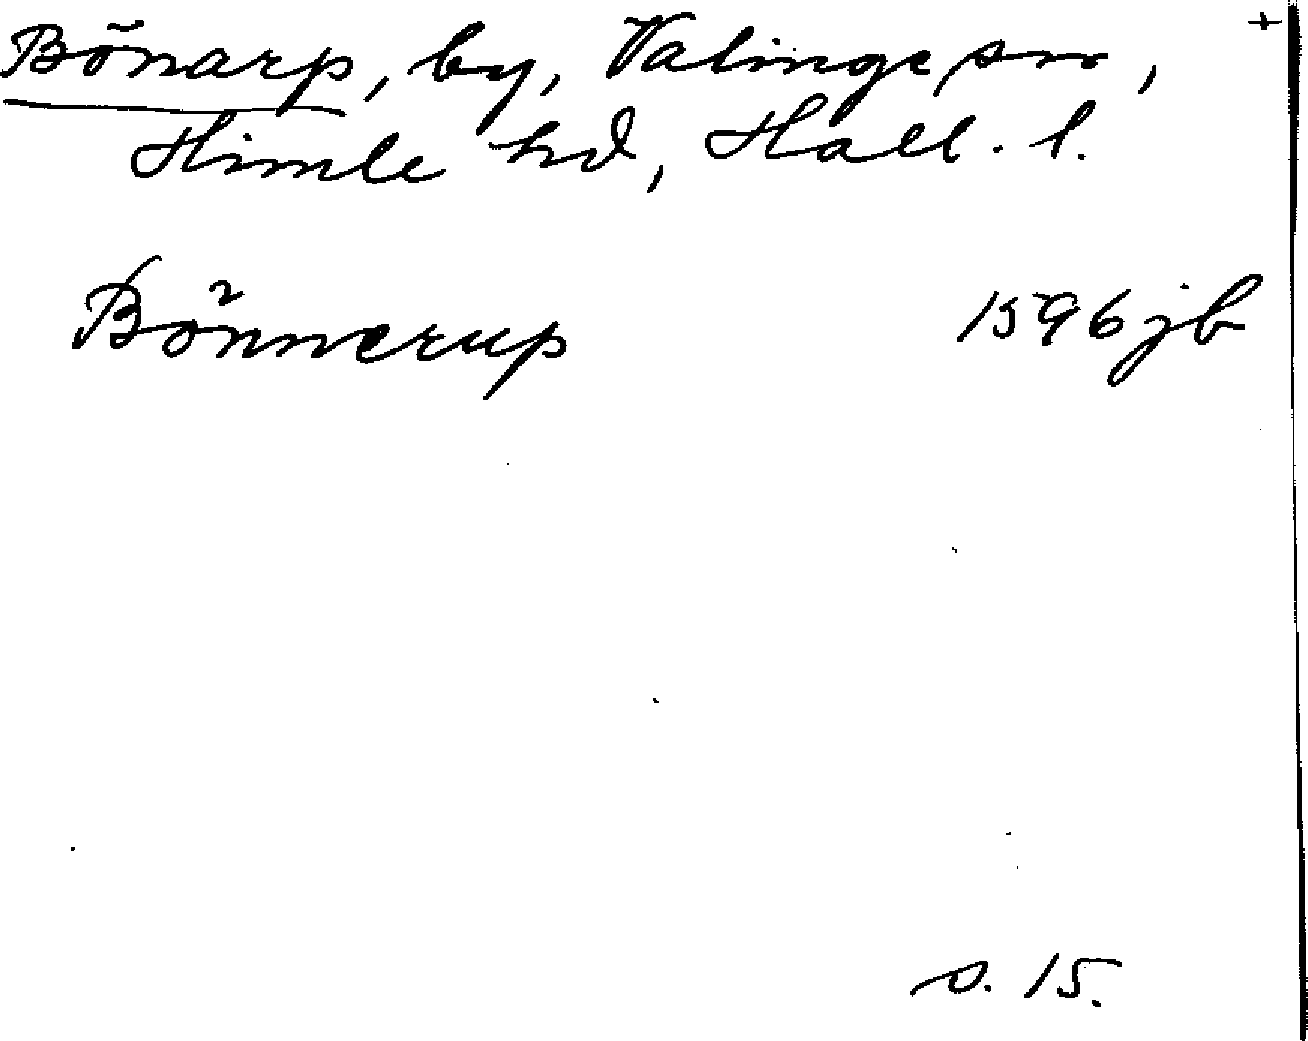 +
Bönarp, by, Valinge sn,
Himle hd, Hall. l.
Bönnerup 1596 jb
s. 15.